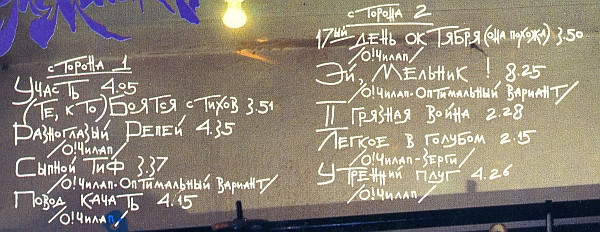 сторона 1
Участь 4.05
(Те, кто) Боятся стихов 3.51
Разноглазый Репей 4.35
/О!Чилап/
Сыпной Тиф 3.37
/О!Чилап-Оптимальный Вариант/
Повод качать 4.15
/О!Чилап/
сторона 2
17ый день октября (она похожа) 3.50
/О!Чилап/
Эй, Мельник ! 8.25
/О!Чилап-Оптимальный Вариант/
II Грязная война 2.28
Легкое в голубом 2.15
/О!Чилап-Зерги/
Утренний плуг 4.26
/О!Чилап/